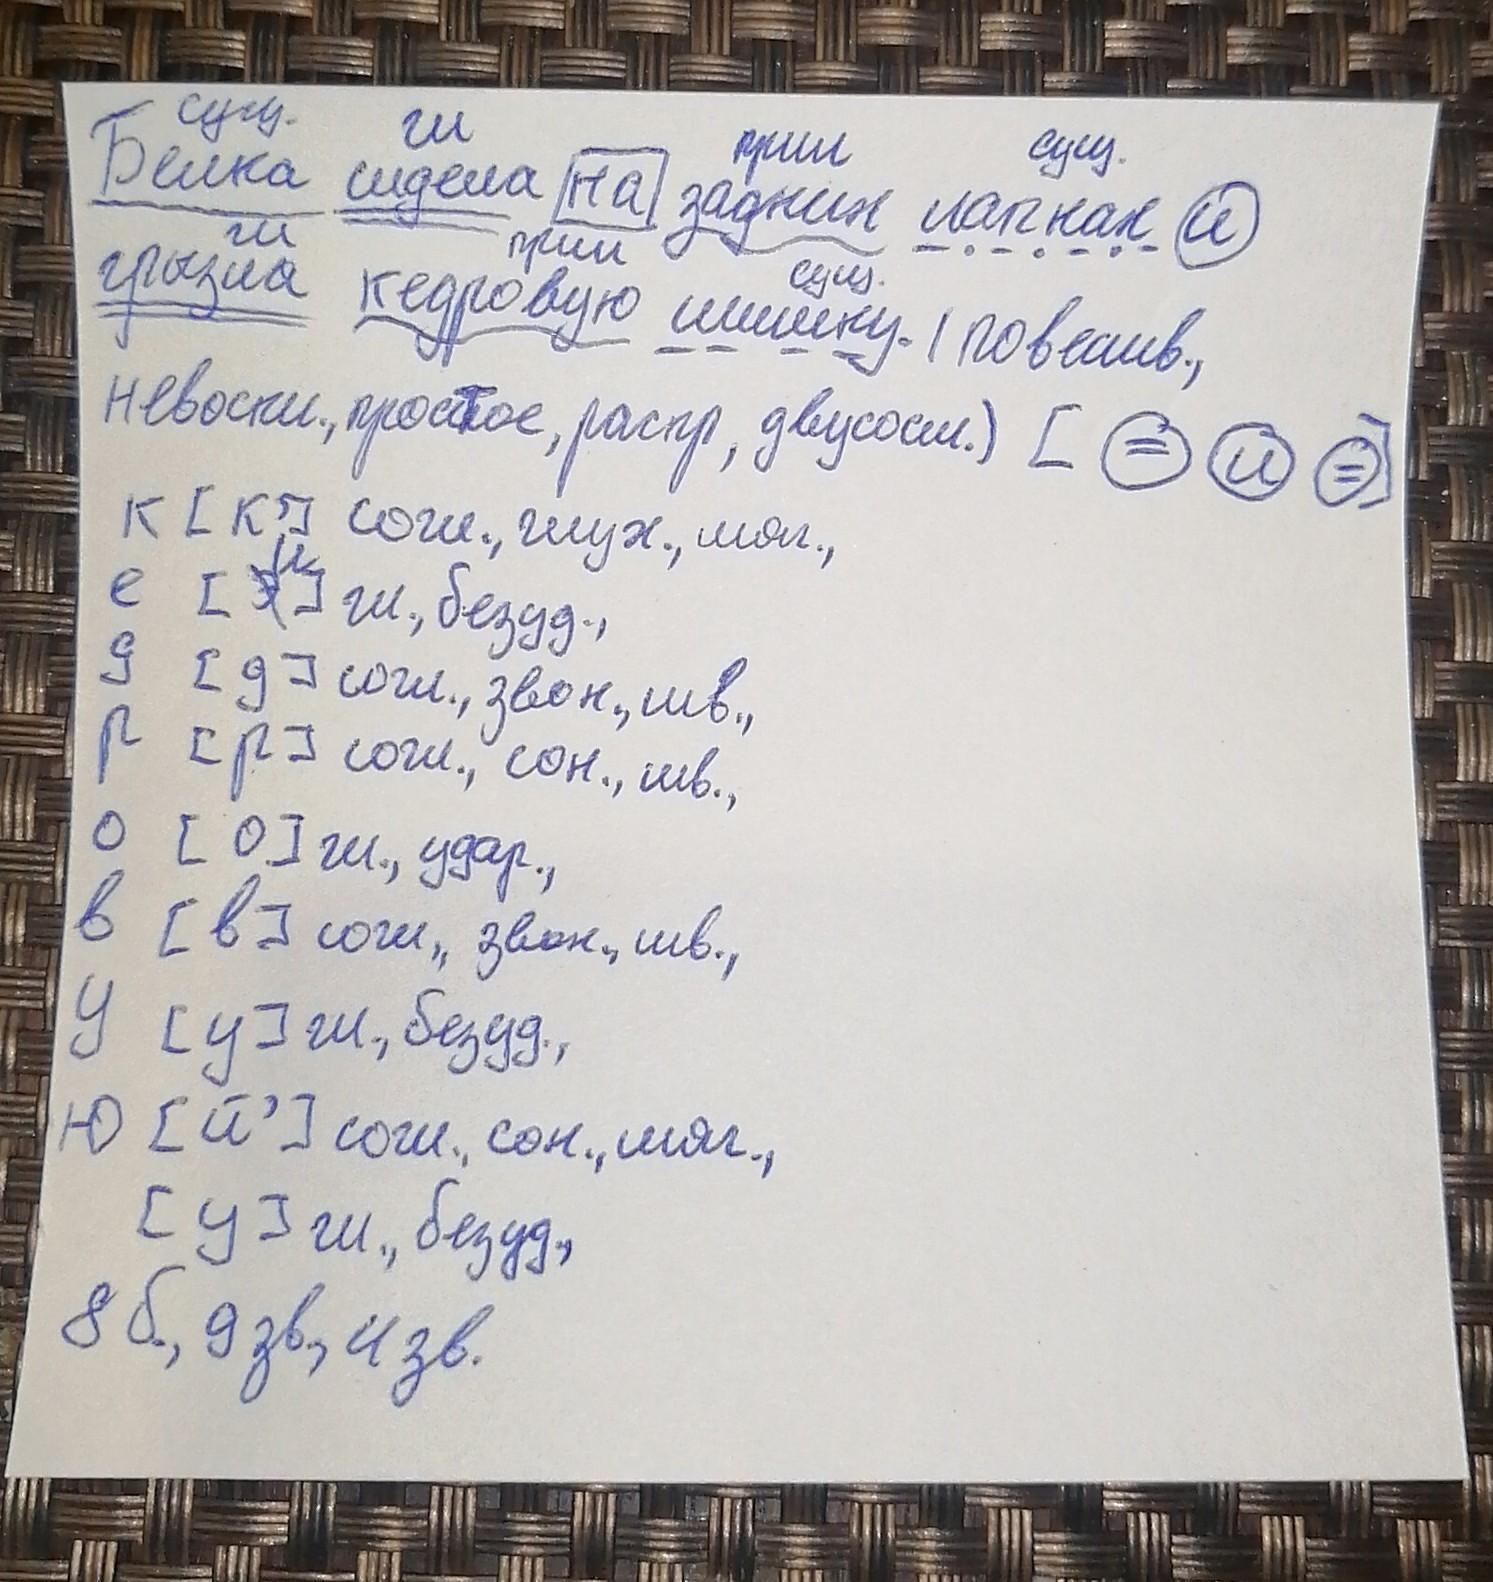 сущ. гл прил сущ.
Белка сидела на задних лапках и
гл прил сущ.
грызла кедровую шишку. (повеств.,
невоскл., простое, распр, двусост.) [ = и = ]
к [к'] согл., глух., мяг.,
е [и] гл., безуд.,
д [д] согл., звон., тв.,
р [р] согл., сон., тв.,
о [о] гл., удар.,
в [в] согл., звон., тв.,
у [у] гл., безуд.,
ю [й'] согл., сон., мяг.,
[у] гл., безуд.,
8 б., 9 зв., 4 зв.